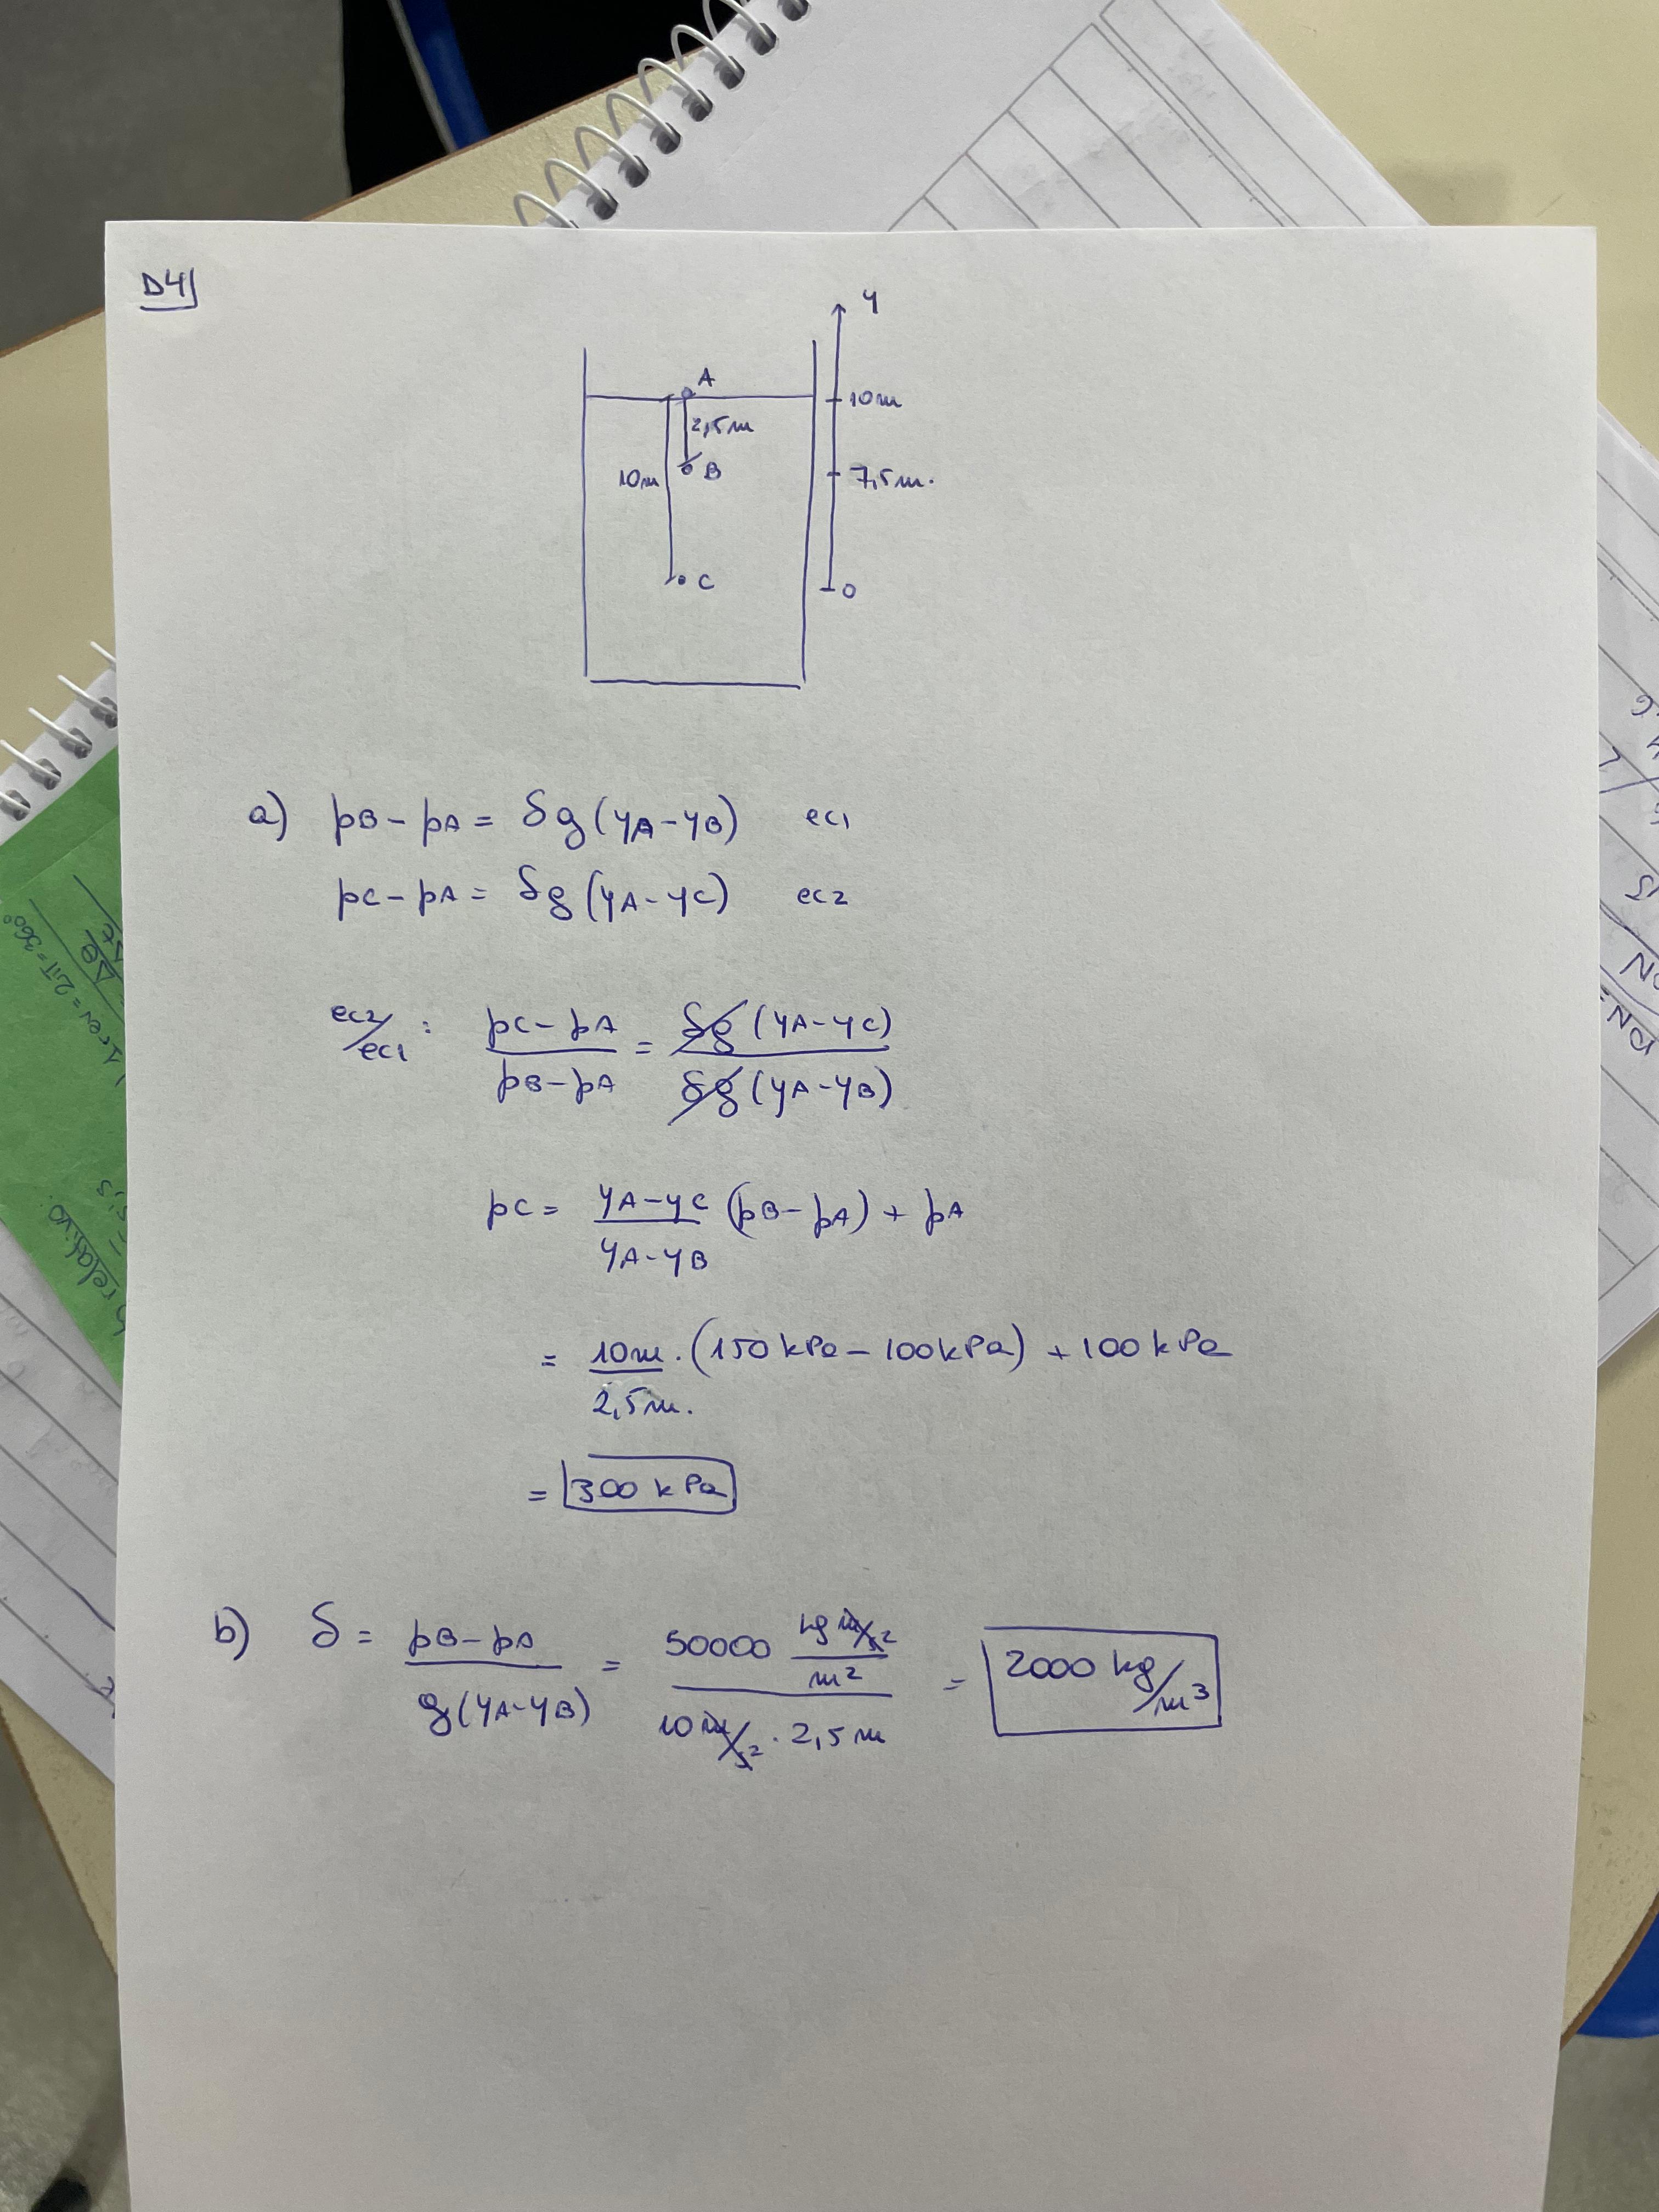 D4)
y
A
10m
2,5m
B
10m
7,5m.
C
0
a) pB - pA = δg(yA-yB) ec1
pC - pA = δg(yA-yC) ec2
ec2/ec1 : pC-pA / pB-pA = δg(yA-yC) / δg(yA-yB)
pC = yA-yC / yA-yB (pB-pA) + pA
= 10m / 2,5m. . (150kPa - 100kPa) + 100kPa
= 300 kPa
b) δ = pB-pA / g(yA-yB) = 50000 kg m/s² / m² / 10 m/s² . 2,5m = 2000 kg/m³
relativo.
1rev = 2π = 360°
Δe
Δt